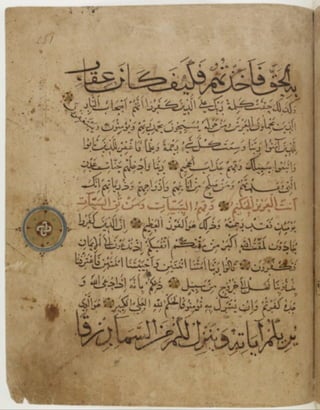 به الحق فأخذتهم فكيف كان عقاب
وكذلك حقت كلمة ربك على الذين كفروا أنهم أصحاب النار
الذين يحملون العرش ومن حوله يسبحون بحمد ربهم ويؤمنون به ويستغفرون
للذين آمنوا ربنا وسعت كل شيء رحمة وعلما فاغفر للذين تابوا
واتبعوا سبيلك وقهم عذاب الجحيم ربنا وأدخلهم جنات عدن
التي وعدتهم ومن صلح من آبائهم وأزواجهم وذرياتهم إنك
أنت العزيز الحكيم وقهم السيئات ومن تق السيئات
يومئذ فقد رحمته وذلك هو الفوز العظيم إن الذين كفروا
ينادون لمقت الله أكبر من مقتكم أنفسكم إذ تدعون إلى الإيمان
فتكفرون قالوا ربنا أمتنا اثنتين وأحييتنا اثنتين فاعترفنا
بذنوبنا فهل إلى خروج من سبيل ذلكم بأنه إذا دعي الله و
حده كفرتم وإن يشرك به تؤمنوا فالحكم لله العلي الكبير هو الذي
يريكم آياته وينزل لكم من السماء رزقا